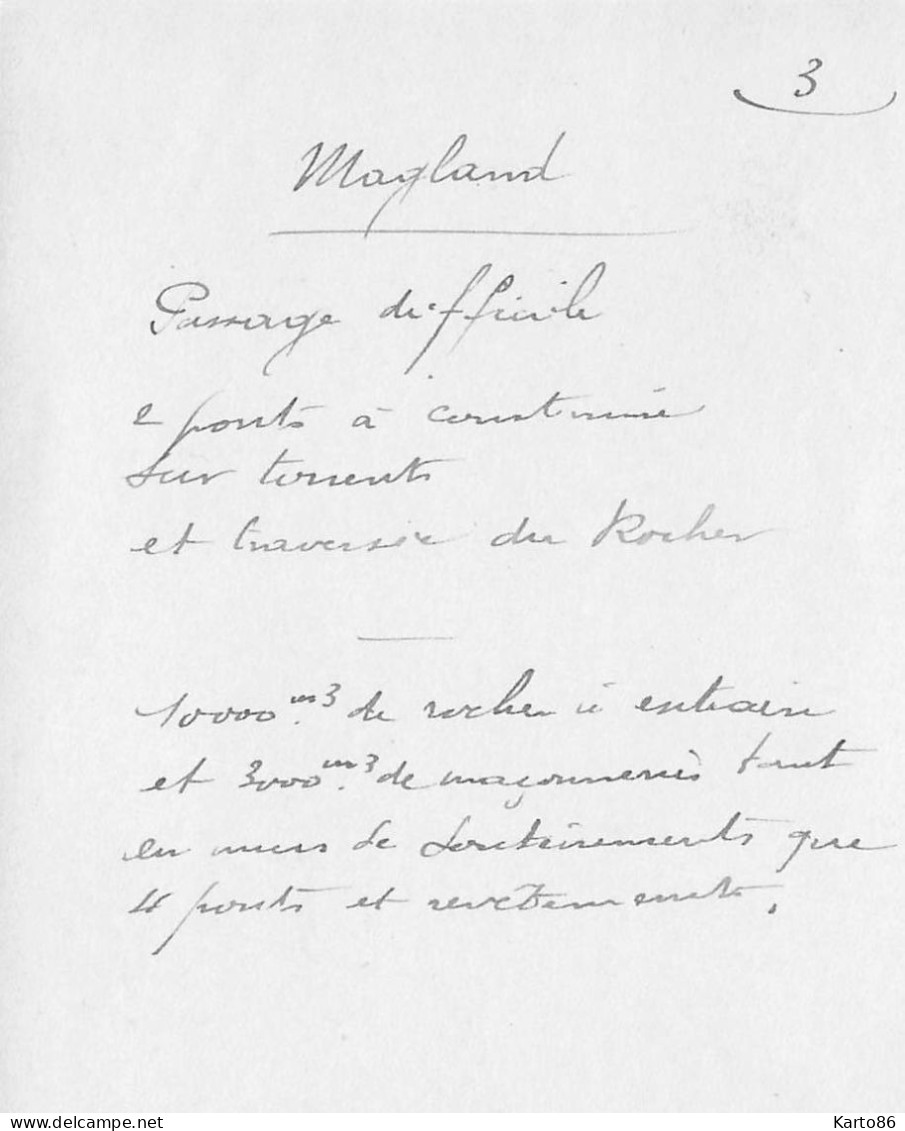 3
Magland
Passage difficile
2 ponts à construire
sur torrents
et traversée du Rocher
10000 m3 de rocher à extraire
et 3000 m3 de maçonneries tant
en murs de soutainements que
4 ponts et revêtements.
delcampe.net
Karto86